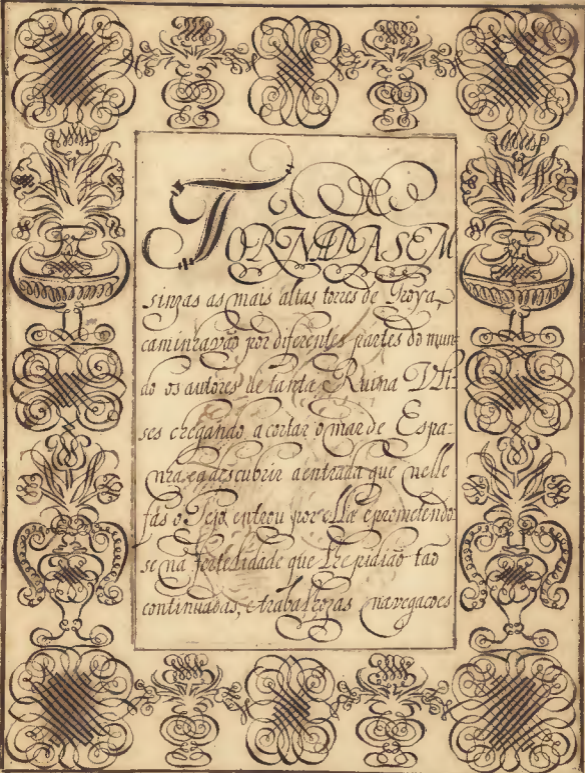 TORNADAS EM
sinzas as mais altas torres de Troya,
caminhavão por diferentes partes do mun-
do os autores de tanta Ruina Vli-
ses chegando a cortar o mar de Espa-
nha, e a descubrir a entrada que nelle
fás o Tejo, entrou por ella e prometendo
se na fertelidade que lhe pidião tão
continuadas, e trabalhozas navegacoes